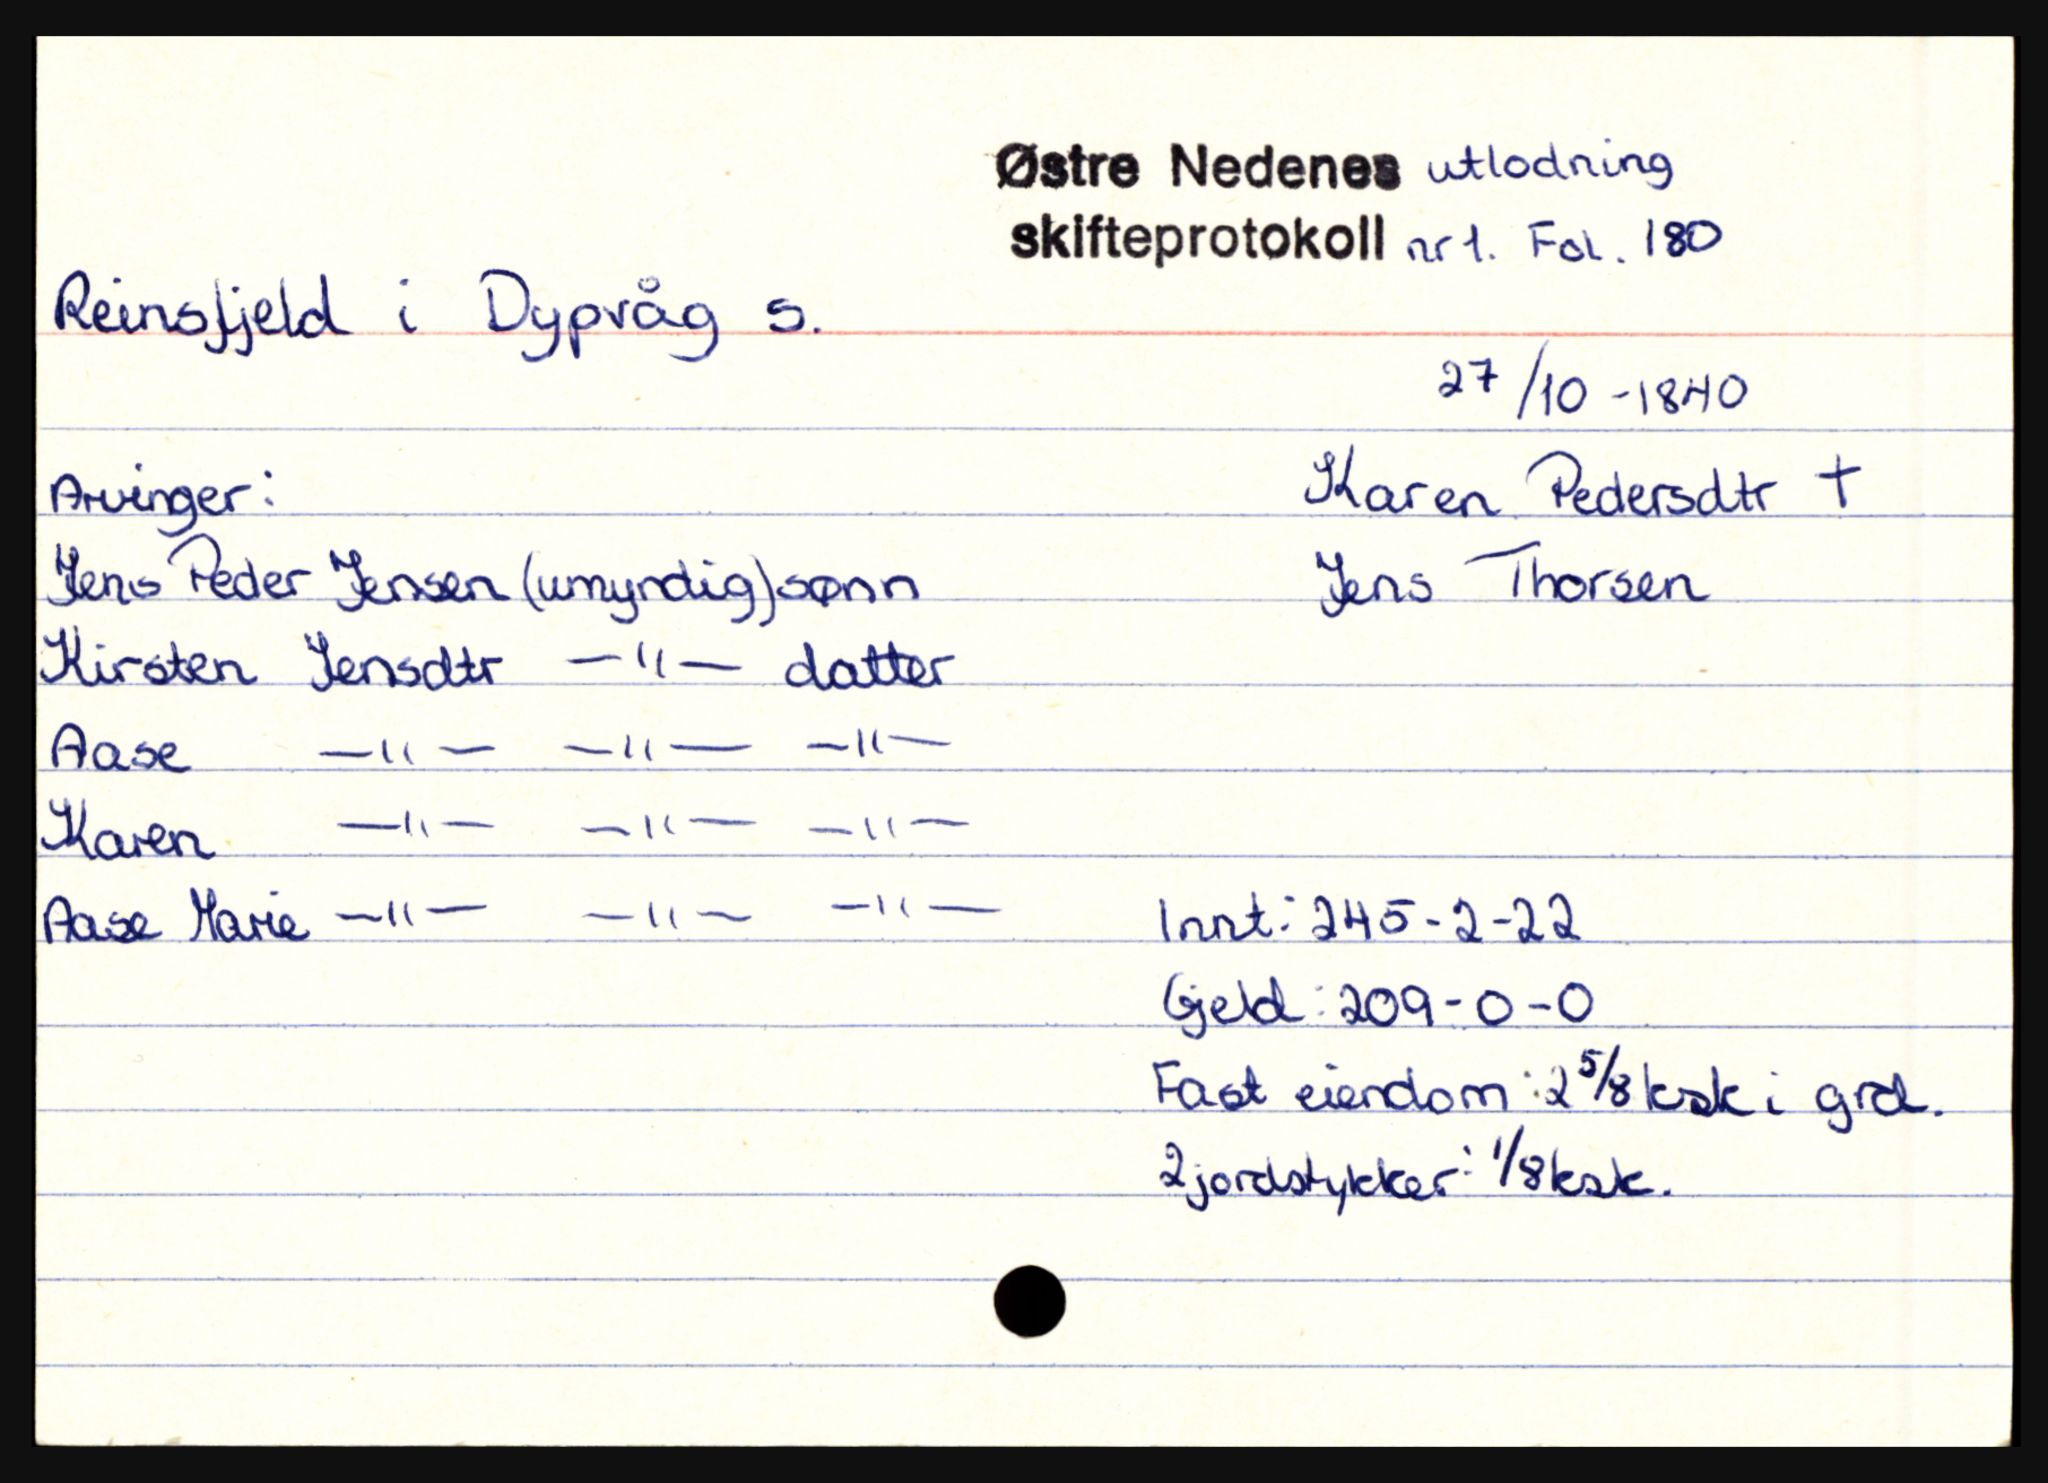 Østre Nedenes utlodning
skifteprotokoll nr 1. Fol. 180
Reinsfjeld i Dypvåg s.
27/10 - 1840
Arvinger:
Karen Pedersdtr †
Jens Peder Jensen (umyndig) sønn
Jens Thorsen
Kirsten Jensdtr —"— datter
Aase —"— —"— —"—
Karen —"— —"— —"—
Aase Marie —"— —"— —"—
Innt: 245-2-22
Gjeld: 209-0-0
Fast eiendom: 2 5/8 ksk i grd.
2 jordstykker: 1/8 ksk.